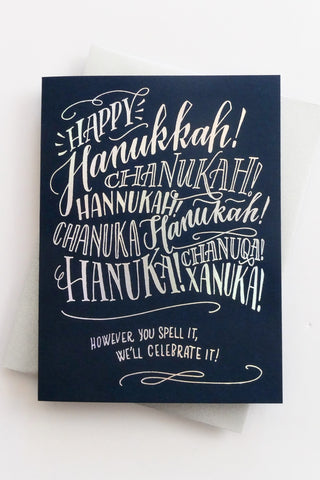 HAPPY
Hanukkah!
CHANUKAH!
HANNUKAH!
CHANUKA Hanukah!
HANUKA! CHANUQA!
XANUKA!
HOWEVER YOU SPELL IT,
WE'LL CELEBRATE IT!